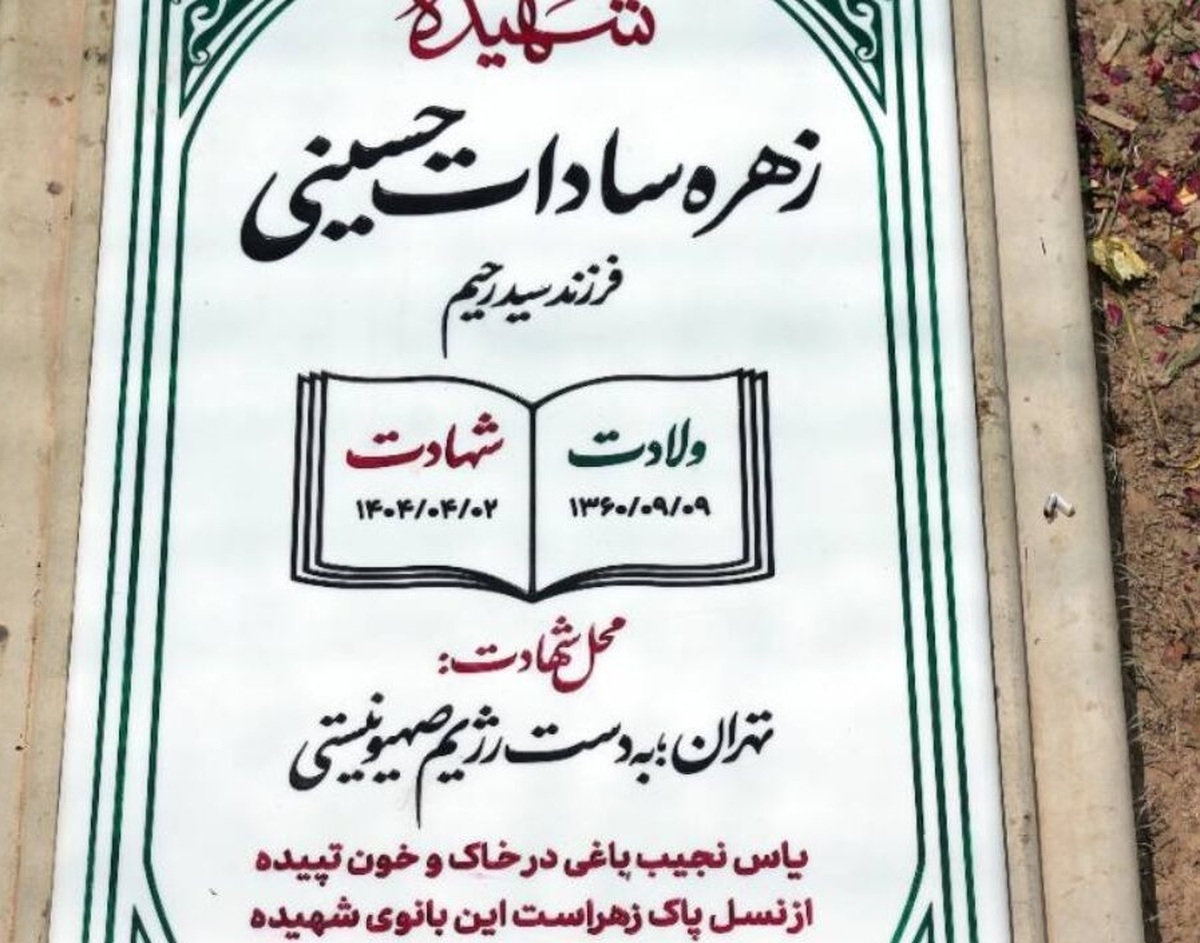 شهیده
زهره سادات حسینی
فرزند سید رحیم
ولادت
۱۳۶۰/۰۹/۰۹
شهادت
۱۴۰۴/۰۴/۰۲
محل شهادت:
تهران؛ به دست رژیم صهیونیستی
یاس نجیب باغی در خاک و خون تپیده
از نسل پاک زهراست این بانوی شهیده